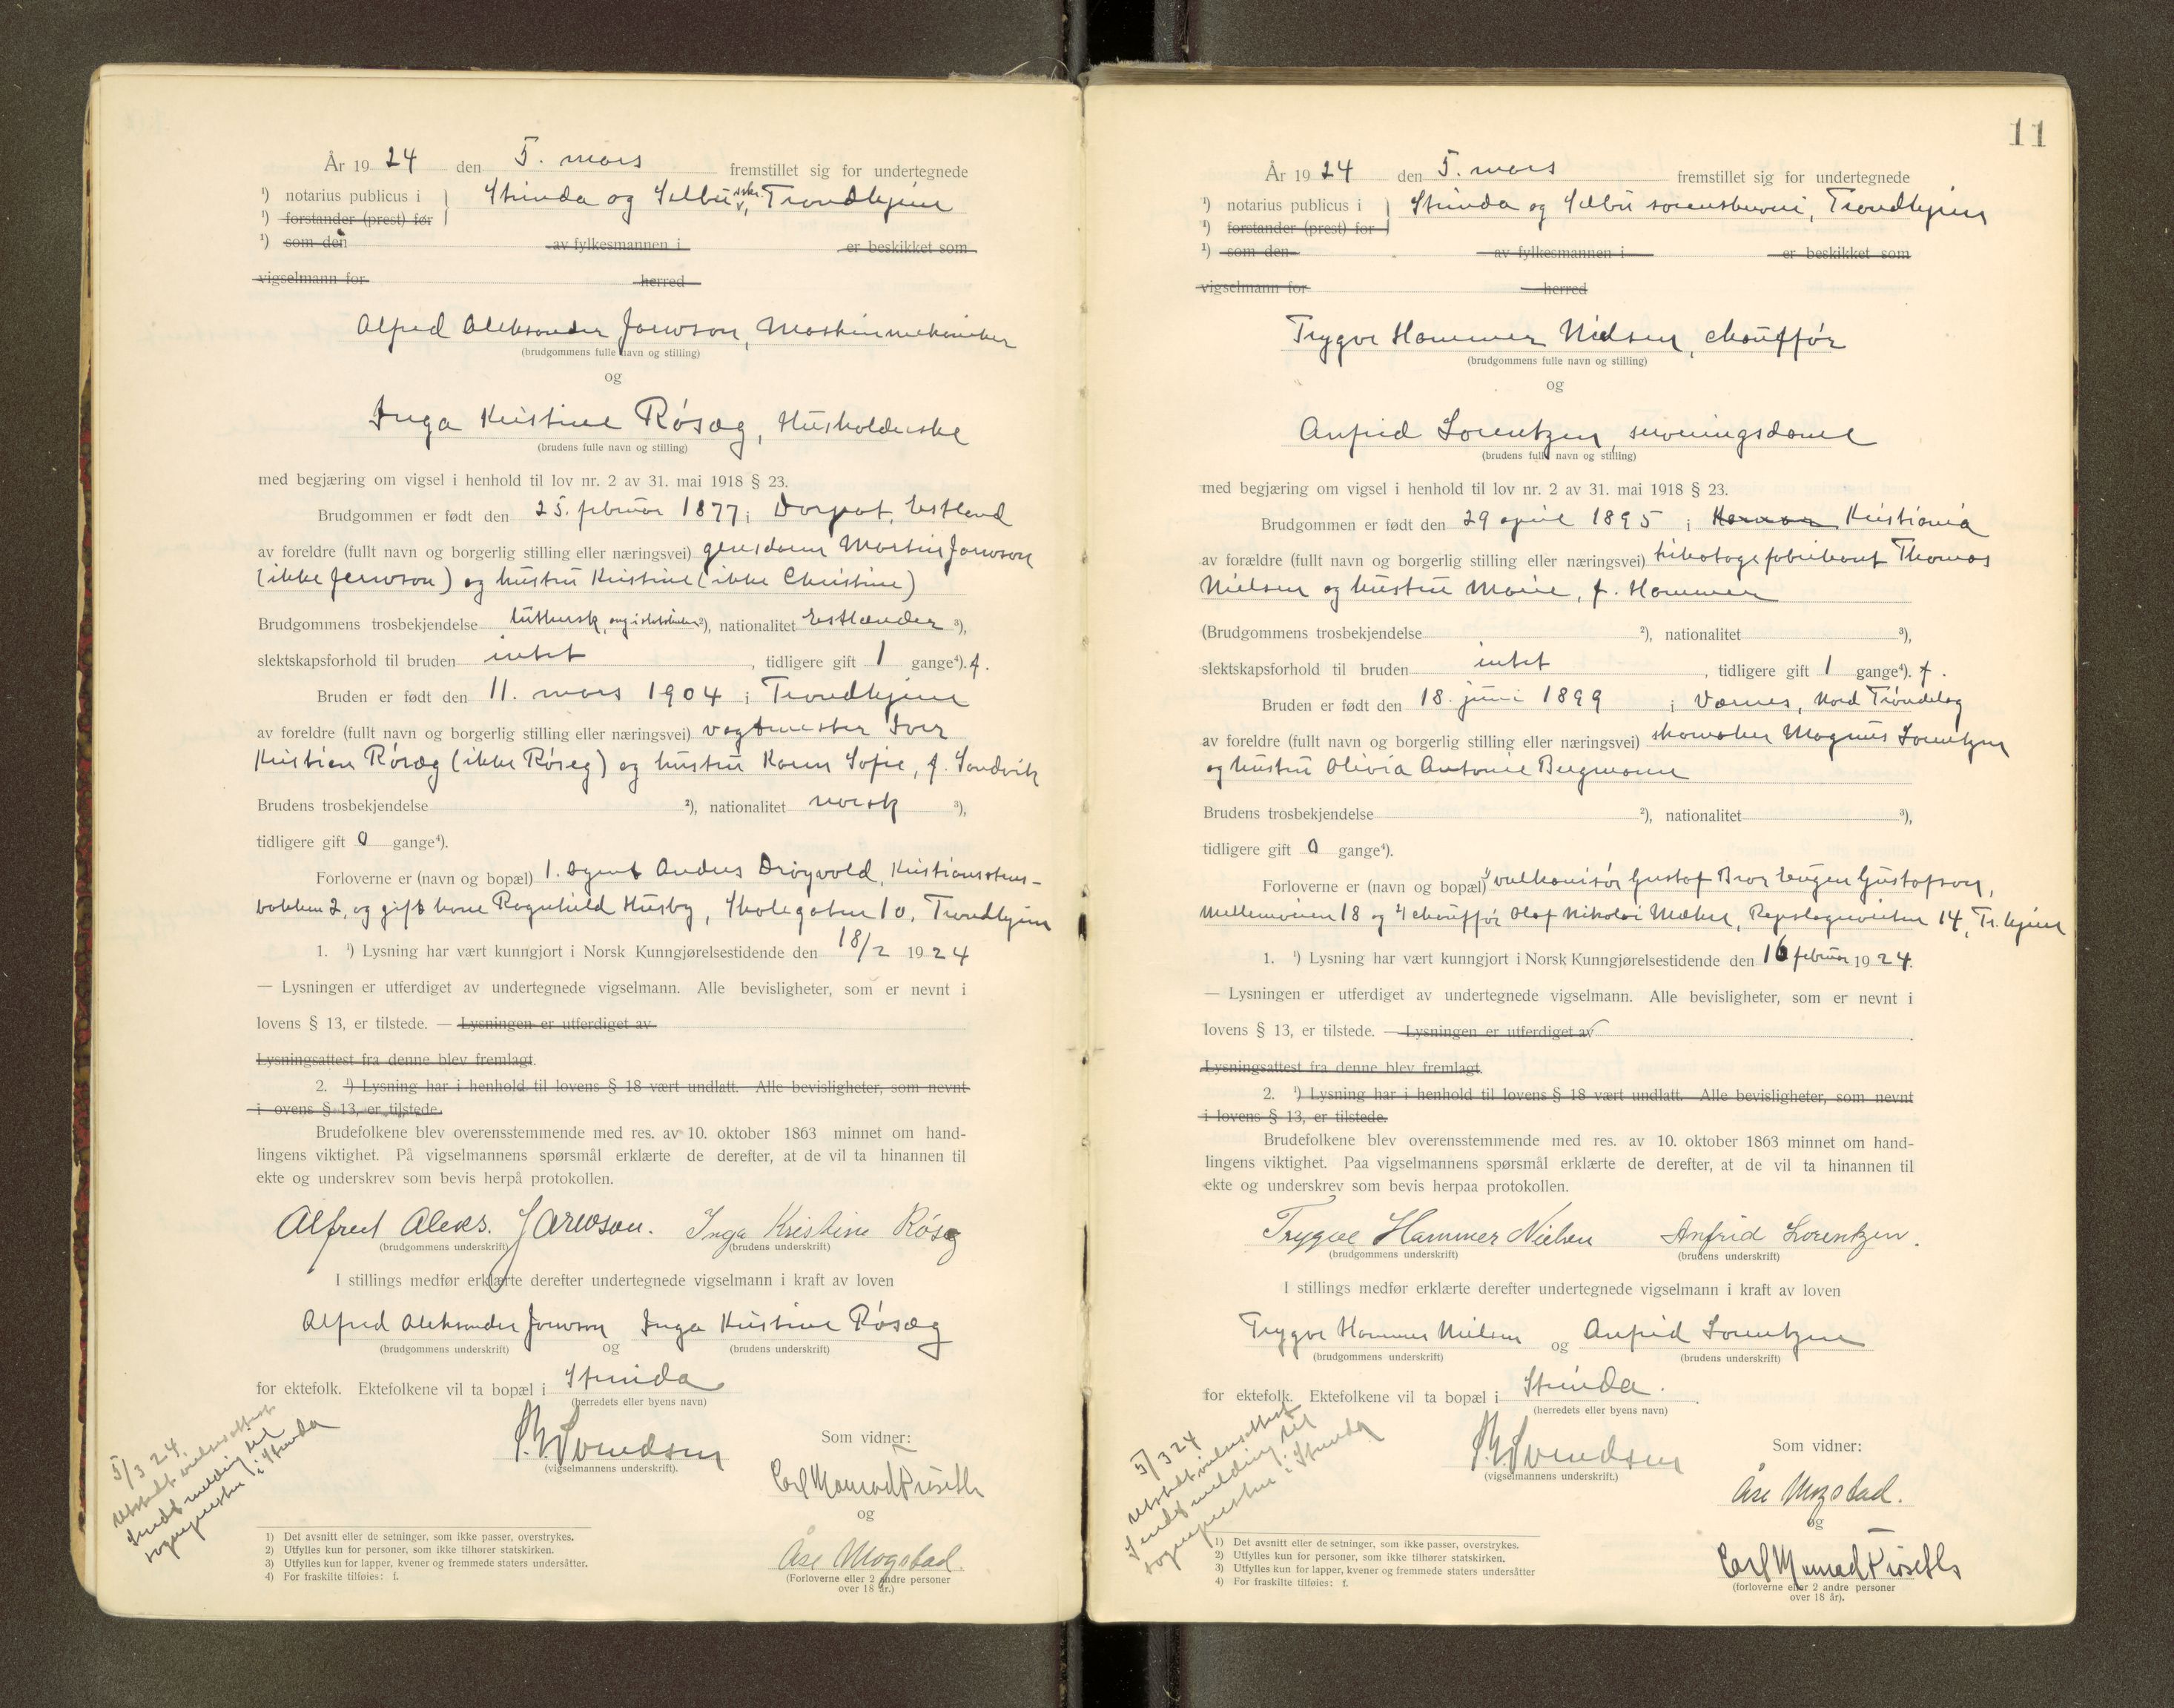 År 19 24 den 5. mars fremstillet sig for undertegnede
¹) notarius publicus i } Strinda og Selbu sskr. Trondhjem
¹) forstander (prest) før
¹) som den av fylkesmannen i er beskikket som
vigselmann for herred
Alfred Aleksander Jarwson, Maskinmekaniker
(brudgommens fulle navn og stilling)
og
Inga Kristine Røsæg, Husholderske
(brudens fulle navn og stilling)
med begjæring om vigsel i henhold til lov nr. 2 av 31. mai 1918 § 23.
Brudgommen er født den 25. februar 1877 i Dorpat, Estland
av foreldre (fullt navn og borgerlig stilling eller næringsvei) gensdarm Martin Jarwson
(ikke Jerwson) og hustru Kristine (ikke Christine)
Brudgommens trosbekjendelse luthersk, ²), nationalitet Estlænder ³),
slektskapsforhold til bruden intet , tidligere gift 1 gange⁴). f.
Bruden er født den 11. mars 1904 i Trondhjem
av foreldre (fullt navn og borgerlig stilling eller næringsvei) vagtmester Iver
Kristian Røsæg (ikke Røseg) og hustru Karen Sofie, f. Sandvik
Brudens trosbekjendelse ²), nationalitet norsk ³),
tidligere gift 0 gange⁴).
Forloverne er (navn og bopæl) 1. Agent Anders Drøyvold, Kristianstens-
bakken 2, og gift kone Ragnhild Husby, Skolegaten 10, Trondhjem
1. ¹) Lysning har vært kunngjort i Norsk Kunngjørelsestidende den 18/2 19 24
— Lysningen er utferdiget av undertegnede vigselmann. Alle bevisligheter, som er nevnt i
lovens § 13, er tilstede. — Lysningen er utferdiget av
Lysningsattest fra denne blev fremlagt.
2. ¹) Lysning har i henhold til lovens § 18 vært undlatt. Alle bevisligheter, som nevnt
i ovens § 13, er tilstede.
Brudefolkene blev overensstemmende med res. av 10. oktober 1863 minnet om hand-
lingens viktighet. På vigselmannens spørsmål erklærte de derefter, at de vil ta hinannen til
ekte og underskrev som bevis herpå protokollen.
Alfred Aleks. Jarwson. Inga Kristine Røsæg
(brudgommens underskrift) (brudens underskrift)
I stillings medfør erklærte derefter undertegnede vigselmann i kraft av loven
Alfred Aleksander Jarwson Inga Kristine Røsæg
(brudgommens underskrift) og (brudens underskrift)
for ektefolk. Ektefolkene vil ta bopæl i Strinda
(herredets eller byens navn)
Svendsen
(vigselmannens underskrift).
Som vidner:
Carl Konrad Prøseth
og
Åse Mogstad.
(Forloverne eller 2 andre personer
over 18 år.)
5/3 24
Utstedt vielsesattest
Sendt melding til
sognepresten i Strinda
1) Det avsnitt eller de setninger, som ikke passer, overstrykes.
2) Utfylles kun for personer, som ikke tilhører statskirken.
3) Utfylles kun for lapper, kvener og fremmede staters undersåtter.
4) For fraskilte tilføies: f.
11
År 19 24 den 5. mars fremstillet sig for undertegnede
¹) notarius publicus i } Strinda og Selbu sorenskriveri, Trondhjem
¹) forstander (prest) for
¹) som den av fylkesmannen i er beskikket som
vigselmann for herred
Trygve Hammer Nielsen, chauffør
(brudgommens fulle navn og stilling)
og
Anfrid Lorentzen, serveringsdame
(brudens fulle navn og stilling)
med begjæring om vigsel i henhold til lov nr. 2 av 31. mai 1918 § 23.
Brudgommen er født den 29 april 1895 i Kristiania
av forældre (fullt navn og borgerlig stilling eller næringsvei) trikotagefabrikant Thomas
Nielsen og hustru Marie, f. Hammer
(Brudgommens trosbekjendelse ²), nationalitet ³),
slektskapsforhold til bruden intet , tidligere gift 1 gange⁴). f.
Bruden er født den 18. juni 1899 i Værnes, Nord Trøndelag
av foreldre (fullt navn og borgerlig stilling eller næringsvei) skomaker Magnus Lorentzen
og hustru Olivia Antonie Bergmann
Brudens trosbekjendelse ²), nationalitet ³),
tidligere gift 0 gange⁴).
Forloverne er (navn og bopæl) vulkanisør Gustaf Bror Eugen Gustafson,
Mellemveien 18 og chauffør Olaf Nikolai Mæhre, Repslagerveiten 14, Tr.hjem
1. ¹) Lysning har vært kunngjort i Norsk Kunngjørelsestidende den 16 februar 19 24.
— Lysningen er utferdiget av undertegnede vigselmann. Alle bevisligheter, som er nevnt i
lovens § 13, er tilstede. — Lysningen er utferdiget av
Lysningsattest fra denne blev fremlagt.
2. ¹) Lysning har i henhold til lovens § 18 vært undlatt. Alle bevisligheter, som nevnt
i lovens § 13, er tilstede.
Brudefolkene blev overensstemmende med res. av 10. oktober 1863 minnet om hand-
lingens viktighet. Paa vigselmannens spørsmål erklærte de derefter, at de vil ta hinannen til
ekte og underskrev som bevis herpaa protokollen.
Trygve Hammer Nielsen Anfrid Lorentzen.
(brudgommens underskrift) (brudens underskrift)
I stillings medfør erklærte derefter undertegnede vigselmann i kraft av loven
Trygve Hammer Nielsen og Anfrid Lorentzen
(brudgommens underskrift) (brudens underskrift)
for ektefolk. Ektefolkene vil ta bopæl i Strinda.
(herredets eller byens navn)
Svendsen
(vigselmannens underskrift.)
Som vidner:
Åse Mogstad.
og
Carl Konrad Prøseth
(forloverne eller 2 andre personer
over 18 år).
5/3 24
Utstedt vielsesattest
Sendt melding til
sognepresten i Strinda
1) Det avsnitt eller de setninger, som ikke passer, overstrykes.
2) Utfylles kun for personer, som ikke tilhører statskirken.
3) Utfylles kun for lapper, kvener og fremmede staters undersåtter
4) For fraskilte tilføies: f.